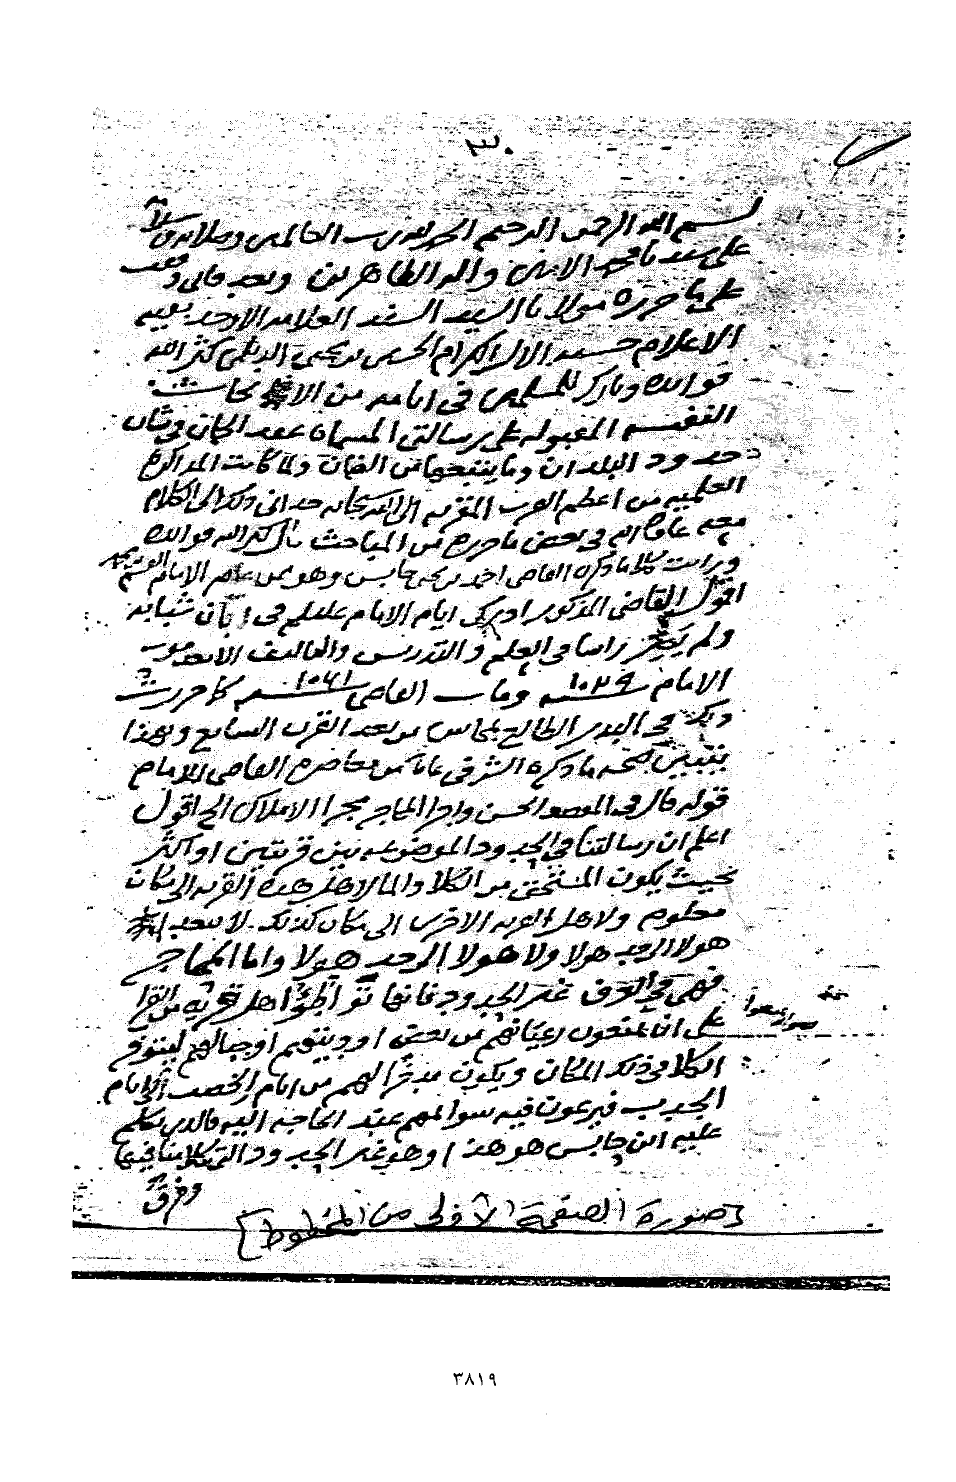 ٣٠
بسم الله الرحمن الرحيم الحمد لله رب العالمين وصلاته وسلامه
على سيدنا محمد الأمين وآله الطاهرين وبعد فاني وقفت
على ما حرره مولانا السيد السند العلامه الأوحد بقية
الاعلام حسنة الآل الكرام الحسين بن يحيى الديلمي كثر الله
فوائده وبارك للمسلمين في أيامه من
المقبوله على رسالتي المسماة عقد الجمان في شان
حدود البلدان وما يتعلق بها من الضمان ولما كانت المذاكرة
العلميه من اعظم القرب المقربه الى الله سبحانه حداني ذلك الى الكلام
معه عافاه الله في بعض ما حرره من المباحث قال كثر الله فوائده
ورايت كلاما ذكره القاضي احمد بن يحيى حابس وهو من علماء الامام القسم بن محمد
اقول القاضي المذكور ادرك ايام الامام عليلم في شبابه
ولم راسا في العلم والتدريس والتأليف الا بعد موت
الامام ١٠٢٩ سنه ومات القاضي ١٠٦١ سنه كما حررت
ذلك في البدر الطالع بمحاسن من بعد القرن السابع وبهذا
يتبين صحة ما ذكره الشرفي من معاصرة القاضي للامام
قوله قال في المقصد الحسن واجرا المحاجر مجرا الاملاك الخ اقول
اعلم ان رسالتنا في الحدود الموضوعه بين قريتين او اكثر
بحيث يكون المستحق من الكلا والما لاهل هذه القريه الى مكان
معلوم ولاهل القريه الاخرى الى مكان كذلك لا يتعدا
هولا الى حد هولا ولا هولا الى حد هولا واما المحاجر
فهي في العرف غير الحدود فانها تواطئ اهل قرية من القرا
على ان يمنعون رعيانهم من بعض اوديتهم او جبالهم ليتوفر
الكلا في ذلك المكان ويكون مدخرا لهم من ايام الخصب الى ايام
الجدب فيرعون فيه سوائمهم عند الحاجه اليه فالذي تكلم
عليه ابن حابس هو هذا وهو غير الحدود التي كلامنا فيها
وفرق
[صورة الصفحة الأولى من المخطوط]
٣٨١٩